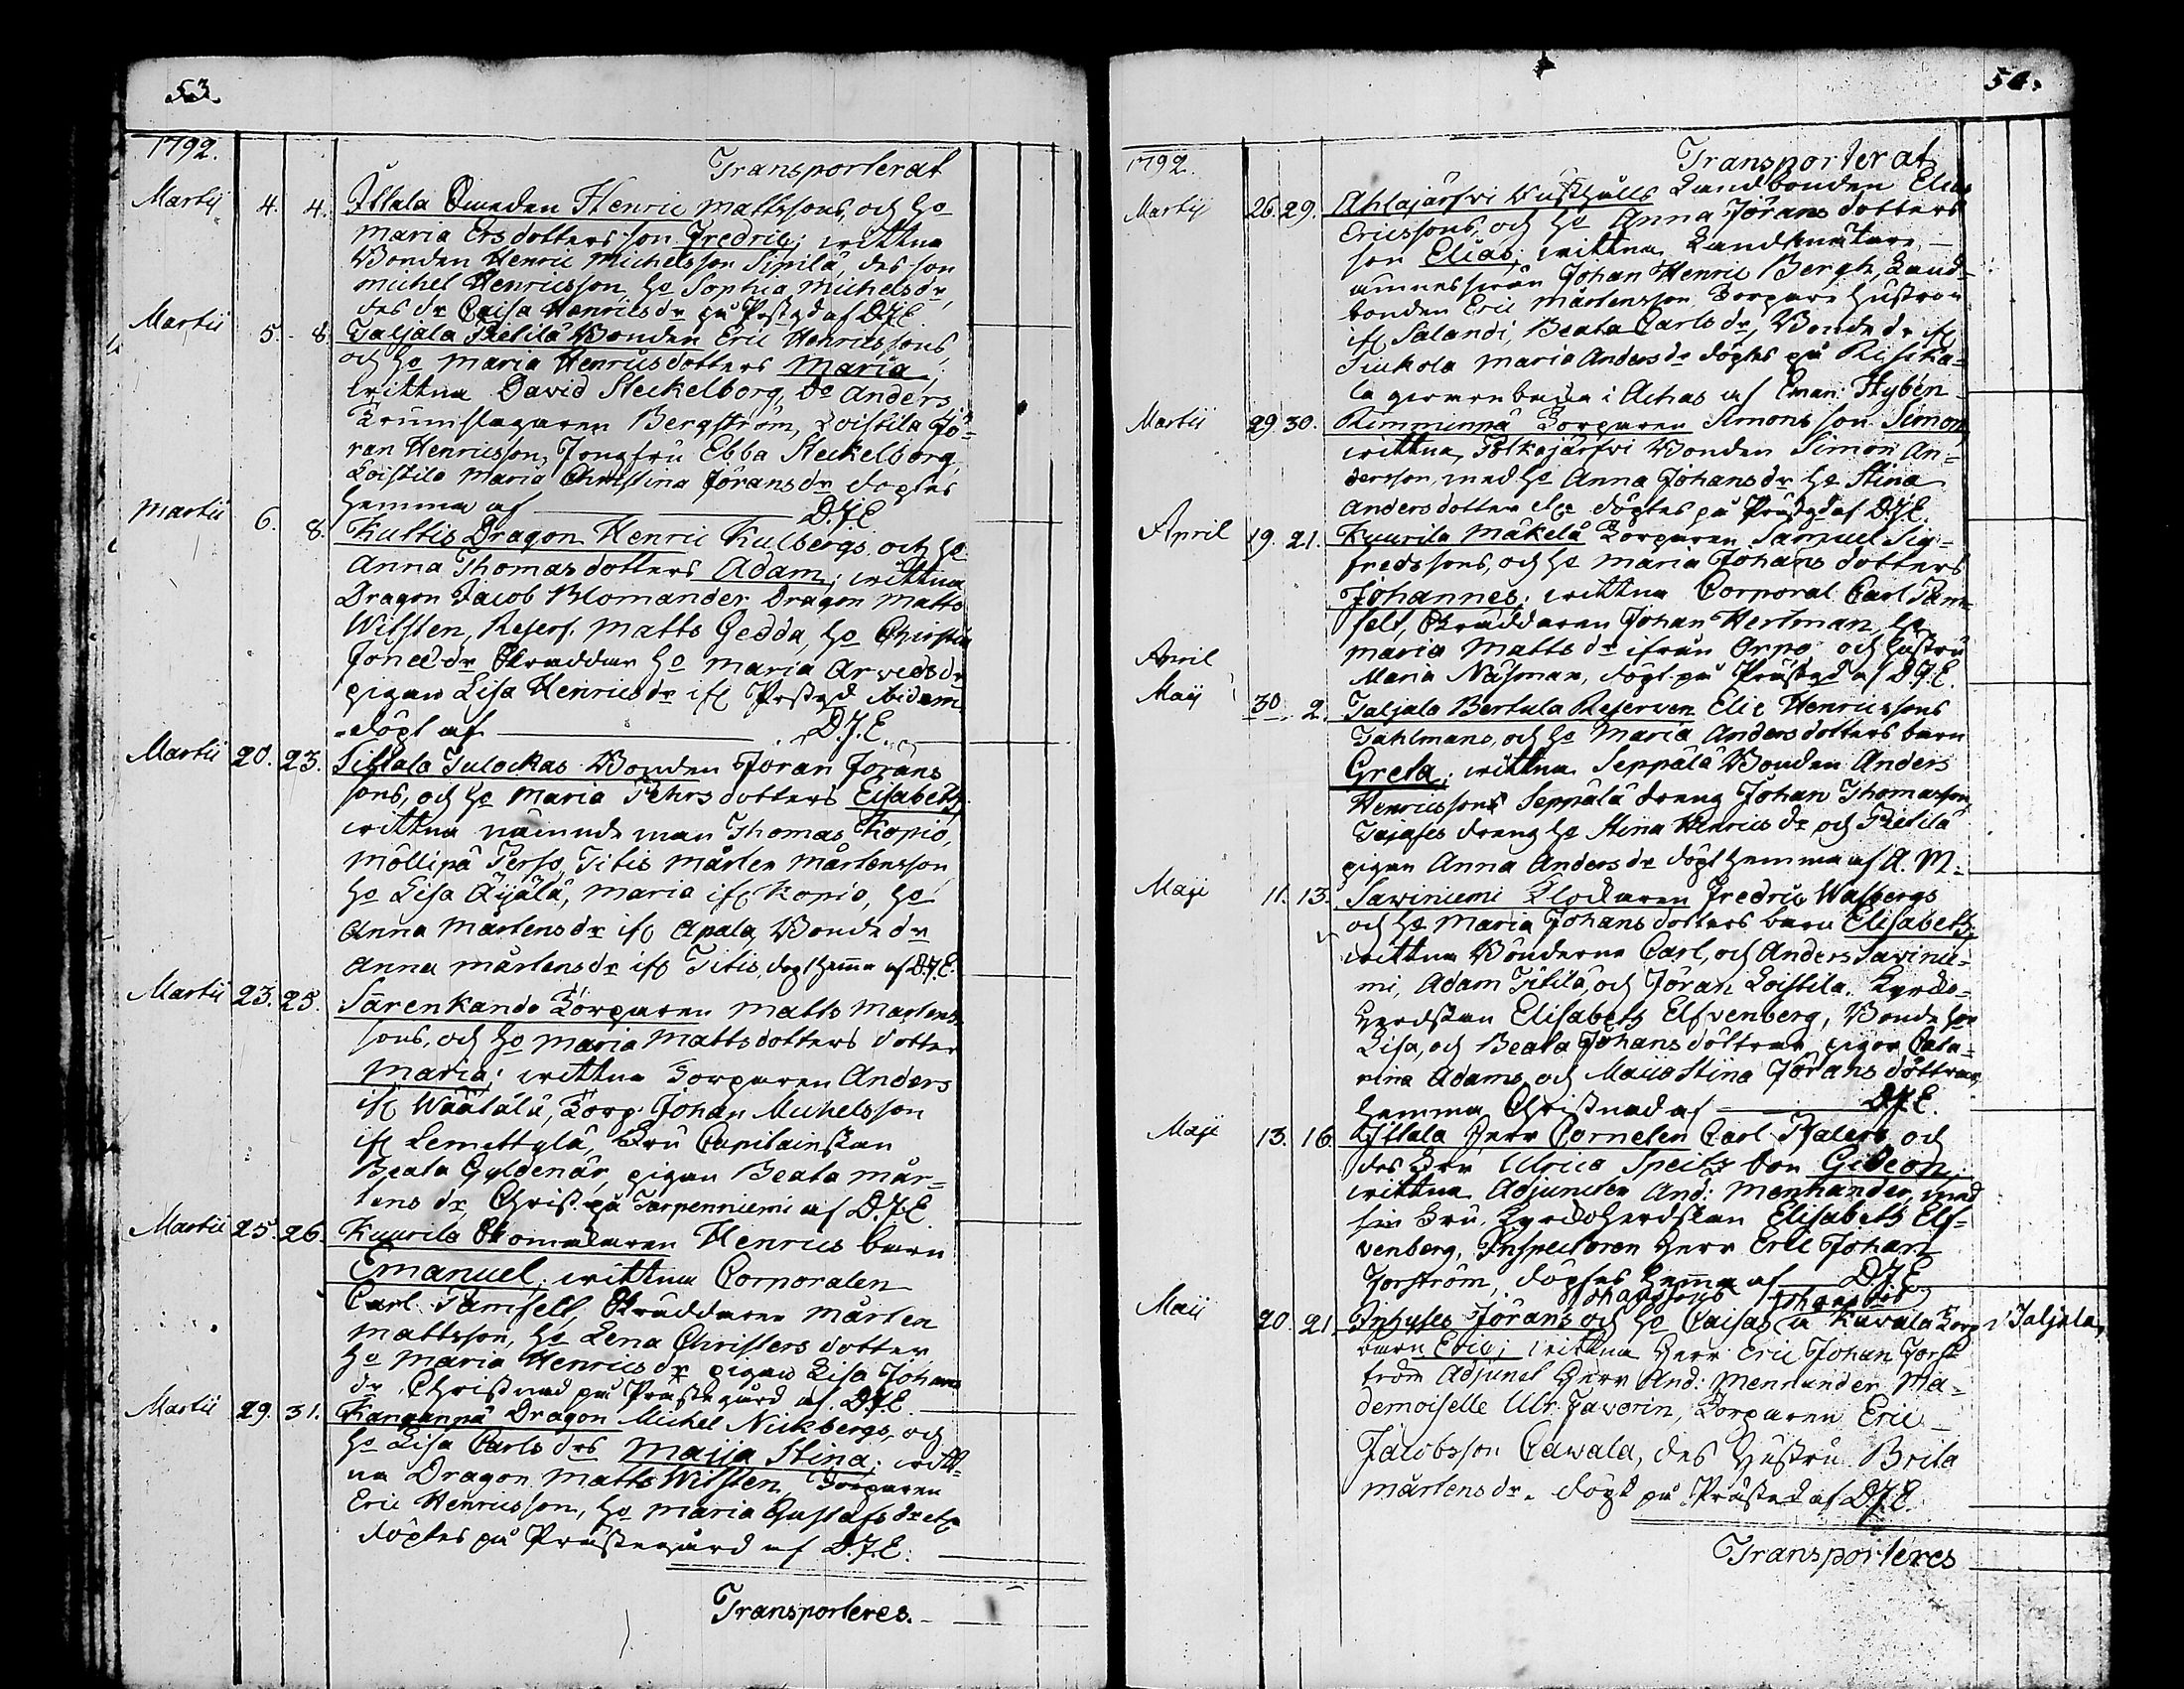 53.
1792.
Transporterat
Martij 4. 4. Ittala Smeden Henric Mattssons, och ho
Maria Ersdotters son Fredric; wittna
Bonden Henric Michelsson Sipilä, des son
Michel Henricsson, ho Sophia Michels dr,
des dr Caisa Henrics dr på Prstgd af DJE
Martii 5. 8. Taljala Pietilä Bonden Eric Henricssons
och ho Maria Henricsdotters Maria;
wittna David Steckelborg, Do Anders
Trumslagaren Bergström, Loistila Jö=
ran Henricsson, Jongfru Ebba Steckelborg,
Loistila Maria Christina Jörans dr döptes
hemma af D.J.E.
Martii 6. 8. Kultis Dragon Henric Kulbergs och ho
Anna Thomasdotters Adam; wittna
Dragon Jacob Blomander Dragon Matts
Wilsten, Reserf. Matts Gedda, ho Christin
Joned dr Skraddar ho Maria Arweds dr
pigan Lisa Henrics dr ifr Prstgd ibidem
döpt af D.J.E.
Martii 20. 23. Sillala Tulockas Bonden Jöran Jörans
sons, och ho Maria Pehrsdotters Elsabeth;
wittna nämnde man Thomas Kopio,
Möllipä Perss, Titis Mårten Mårtensson
ho Lisa Äijälä, Maria ifr Kopio, ho
Anna Mårtens dr ifr Apala, Bonde dr
Anna Mårtens dr ifr Titis, döpt hema af D.J.E.
Martii 23. 25. Särenkando Torparen Matts Martens
sons, och ho Maria Mattsdotters dotter
Maria; wittna Torparen Anders
ifr Wäätälä, Torp. Johan Michelsson
ifr Lemettylä, Fru Capitainskan
Beata Gyldenär, pigan Beata Mår=
tens dr, Christ. på Tarpenniemi af D.J.E.
Martii 25. 26. Kuurila Skomakaren Henrics barn
Emanuel; wittna Corporalen
Carl Tamfelt, Skräddaren Mårten
Mattsson, ho Lena Christersdotter
ho Maria Henrics dr pigan Lisa Johans
dr, Christnad på Prästegård af D.J.E.
Martii 29. 31. Kanganpä Dragon Michel Nickbergs, och
ho Lisa Carls drs Maija Stina; witt=
na Dragon Matts Wilsten, Torparen
Eric Henricsson, ho Maria Gustafs dr etc
döptes på Prästegård af D.J.E:
Transporteres.
54.
1792.
Transporterat
Martij 26. 29. Ahlajärfwi Rusthålls Landbonden Elias
Ericssons, och ho Anna Jörans dotters
son Elias; wittna Landtmätare
Johan Henric Bergh, Land=
bonden Eric Mårtensson Torpare Hustrun
ifr Salandi, Beata Carls dr, Bonde dr ifr
Tuckola Maria Anders dr döptes på Rifska=
la i Achas af Eman: Hybén
Martii 29. 30. Rimminnä Torparen Simons son Simon,
wittna, Polkajärfwi Bonden Simon An=
dersson, med ho Anna Johans dr ho Stina
Andersdotter etc döptes på Prästgd af D.J.E.
April 19. 21. Kuurila Mäkelä Torparen Samuel Sig=
fredssons, och ho Maria Johans dotters
Johannes; wittna Corporal Carl Tam=
felt, Skräddaren Johan Hertman, ho
Maria Matts dr ifrån Orpo och hustru
Maria Näsman, döpt på Prästgd af D.J.E.
April
Maij 30. 2. Taljala Bertula Reserven Elie Henricssons
Tahlmans, och ho Maria Andersdotters barn
Greta; wittna Seppälä Bonden Anders
Henricssons Seppälä dreng Johan Thomasson,
dreng ho Stina Henrics dr och Pietilä
pigan Anna Anders dr döpt hemma af A. M.
Maji 11. 13. Sawiniemi Klockaren Fredric Walbergs
och ho Maria Johansdotters barn Elisabeth;
wittna Bönderna Carl, och Anders Sawinie=
mi, Adam Titilä, och Jöran Loistila. Kyrko=
herdskan Elisabeth Elfvenberg, Bonde hor
Lisa, och Beata Johans döttrar, pigor Cata=
rina Adams, och Maija Stina Jörans döttrar,
hemma Christnad af D.J.E.
Maji 13. 16. Ittala Herr Corneten Carl Palers och
des Fru Ulrica Speitz son Gideon;
wittna Adjuncten And: Menhander, med
sin Fru, Kyrkoherdskan Elisabeth Elf=
venberg, Inspectoren Herr Eric Johan
Forström, döptes hemma af D.J.E.
Maij 20. 21. Inhyses Jörans Johanssons och ho Caisas Johans drs å Kawala Torp i Taljala,
barn Eric; wittna Herr Eric Johan Forst
tröm Adjunct Herr And: Mennander Ma=
demoiselle Ulr. Faworin, Torparen Eric
Jacobsson Cawala, des Hustru Brita
Mårtens dr. döpt på Prästgd af D.J.E.
Transporteres